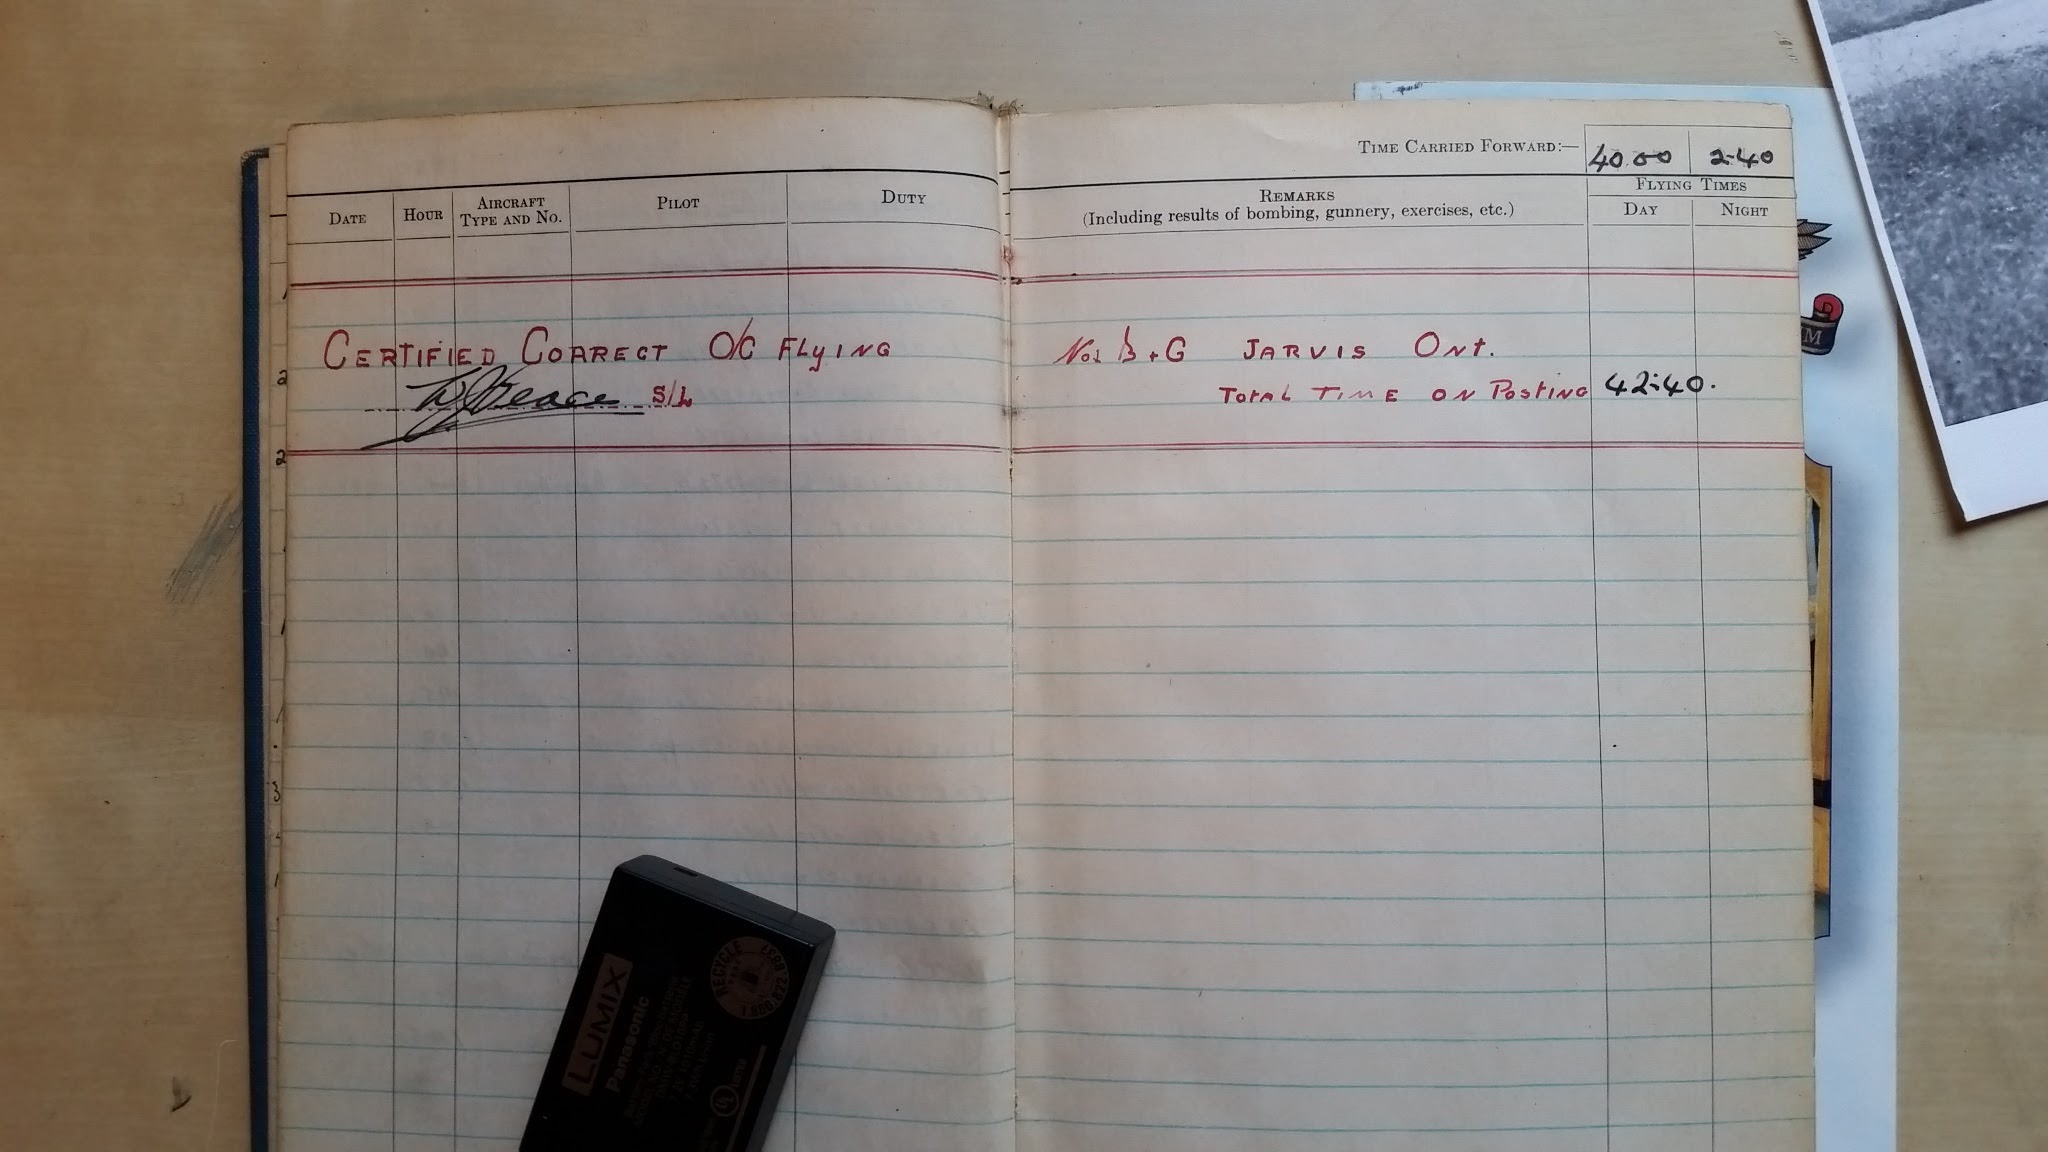 TIME CARRIED FORWARD:— 40.00 2-40
DATE HOUR AIRCRAFT TYPE AND NO. PILOT DUTY
REMARKS
(Including results of bombing, gunnery, exercises, etc.)
FLYING TIMES
DAY NIGHT
CERTIFIED CORRECT O/C FLYING
S/L
No1 B + G JARVIS ONT.
TOTAL TIME ON POSTING 42:40.
2
2
3
M
LUMIX
Panasonic
RECYCLE
1.800.822.8837